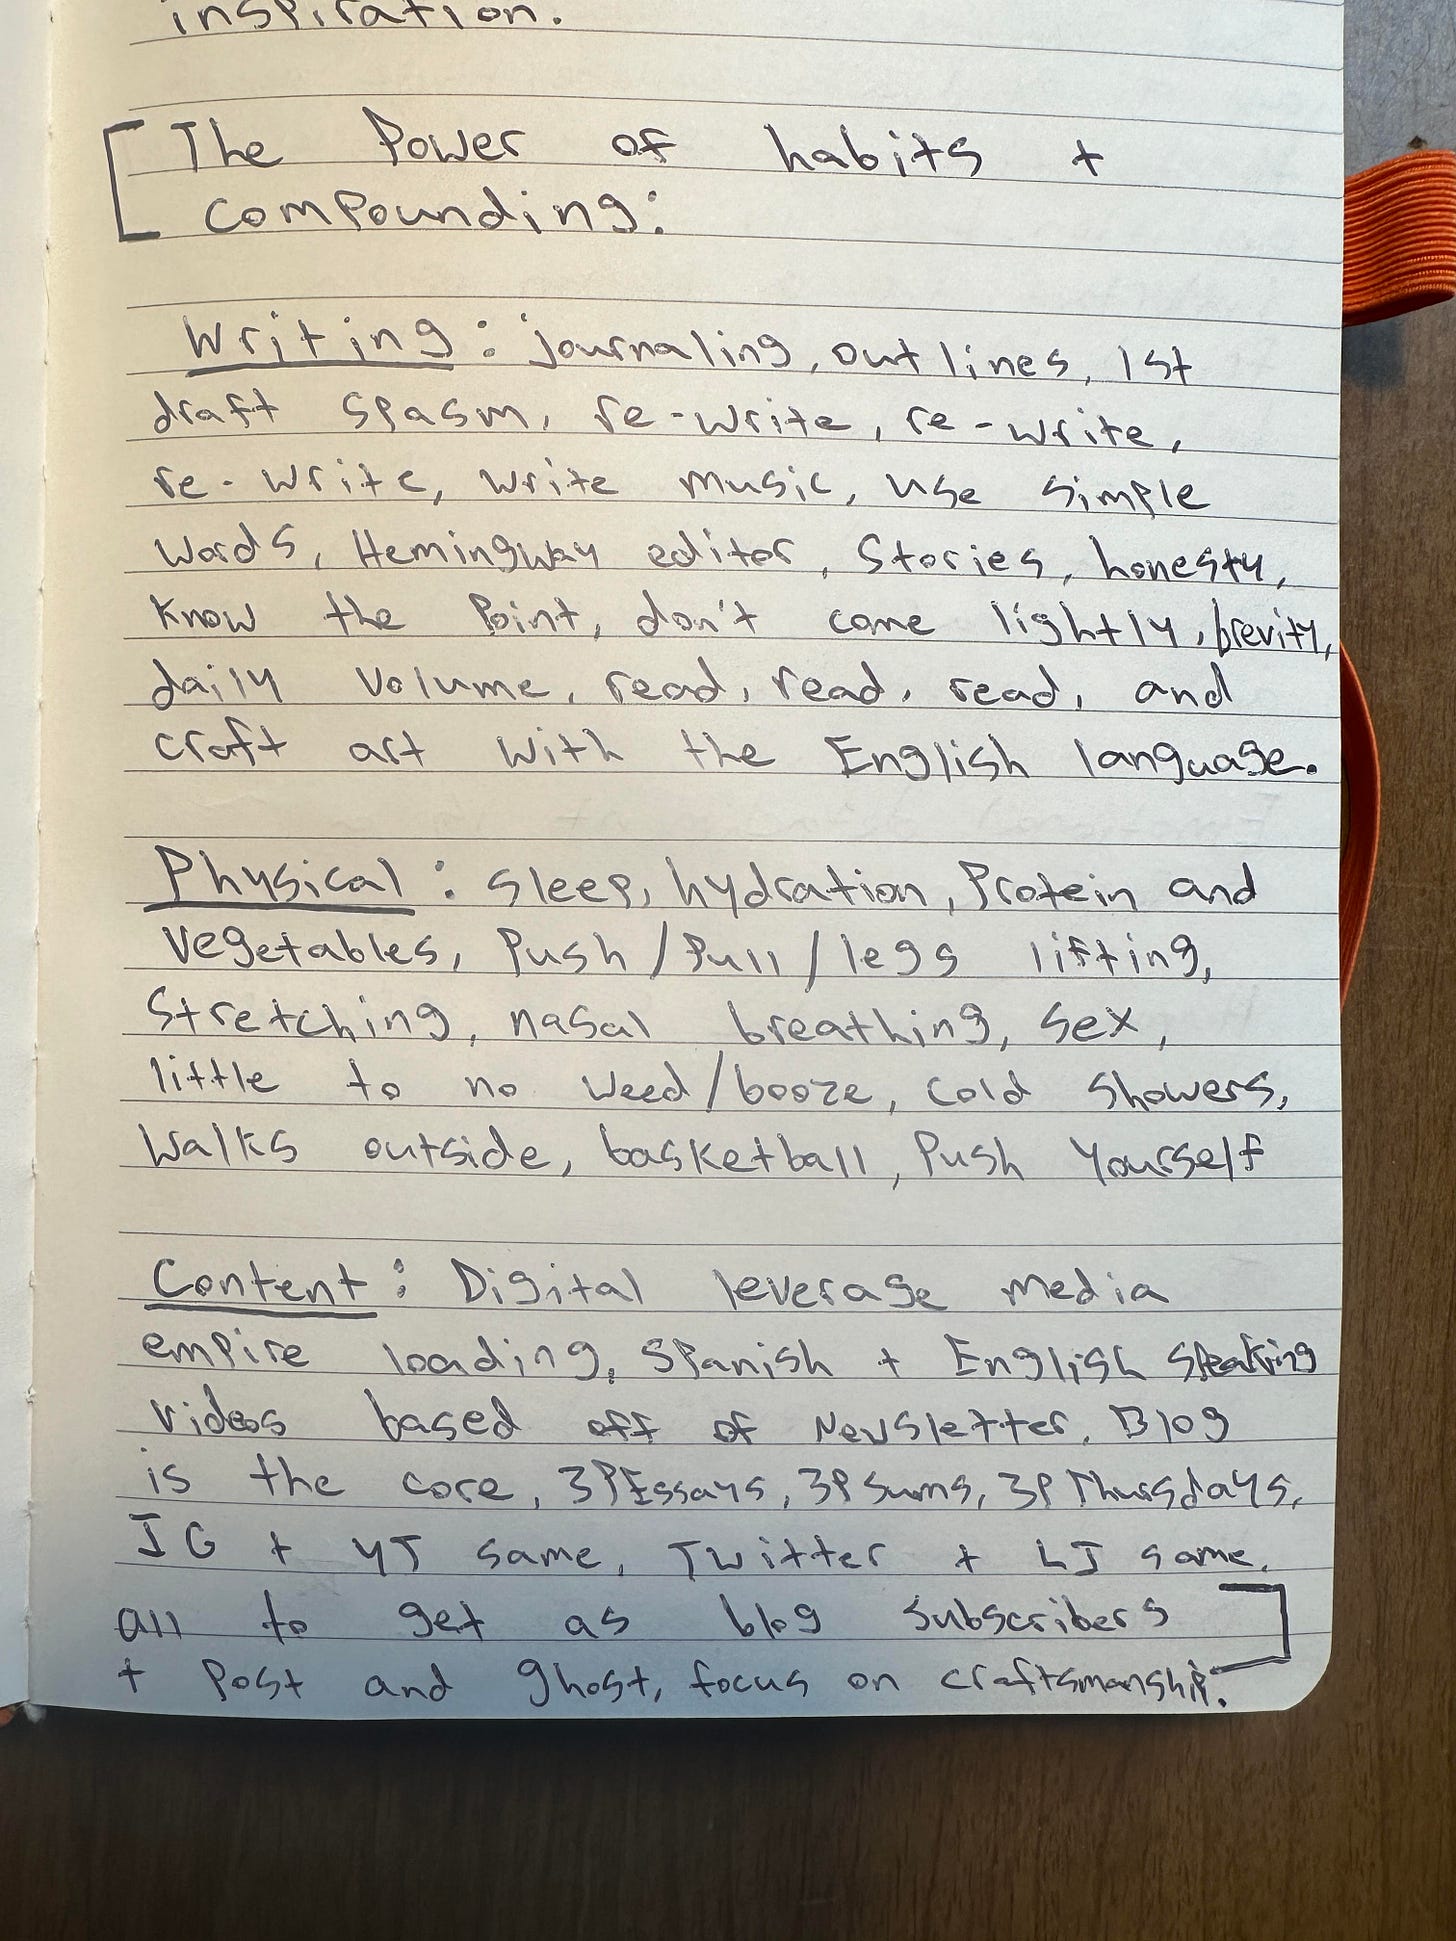 inspiration.
[The Power of habits +
compounding:
Writing: journaling, outlines, 1st
draft spasm, re-write, re-write,
re-write, write music, use simple
words, Hemingway editor, Stories, honesty,
know the point, don't come lightly, brevity,
daily volume, read, read, read, and
craft art with the English language.
Physical: sleep, hydration, Protein and
vegetables, Push/Pull/legs lifting,
Stretching, nasal breathing, sex,
little to no weed/booze, cold showers,
Walks outside, basketball, Push Yourself
Content: Digital leverage media
empire loading, Spanish + English speaking
videos based off of Newsletter, Blog
is the core, 3PEssays, 3PSums, 3PThursdays,
IG + YT same, Twitter + LI same,
all to get as blog subscribers
+ Post and ghost, focus on craftsmanship.]